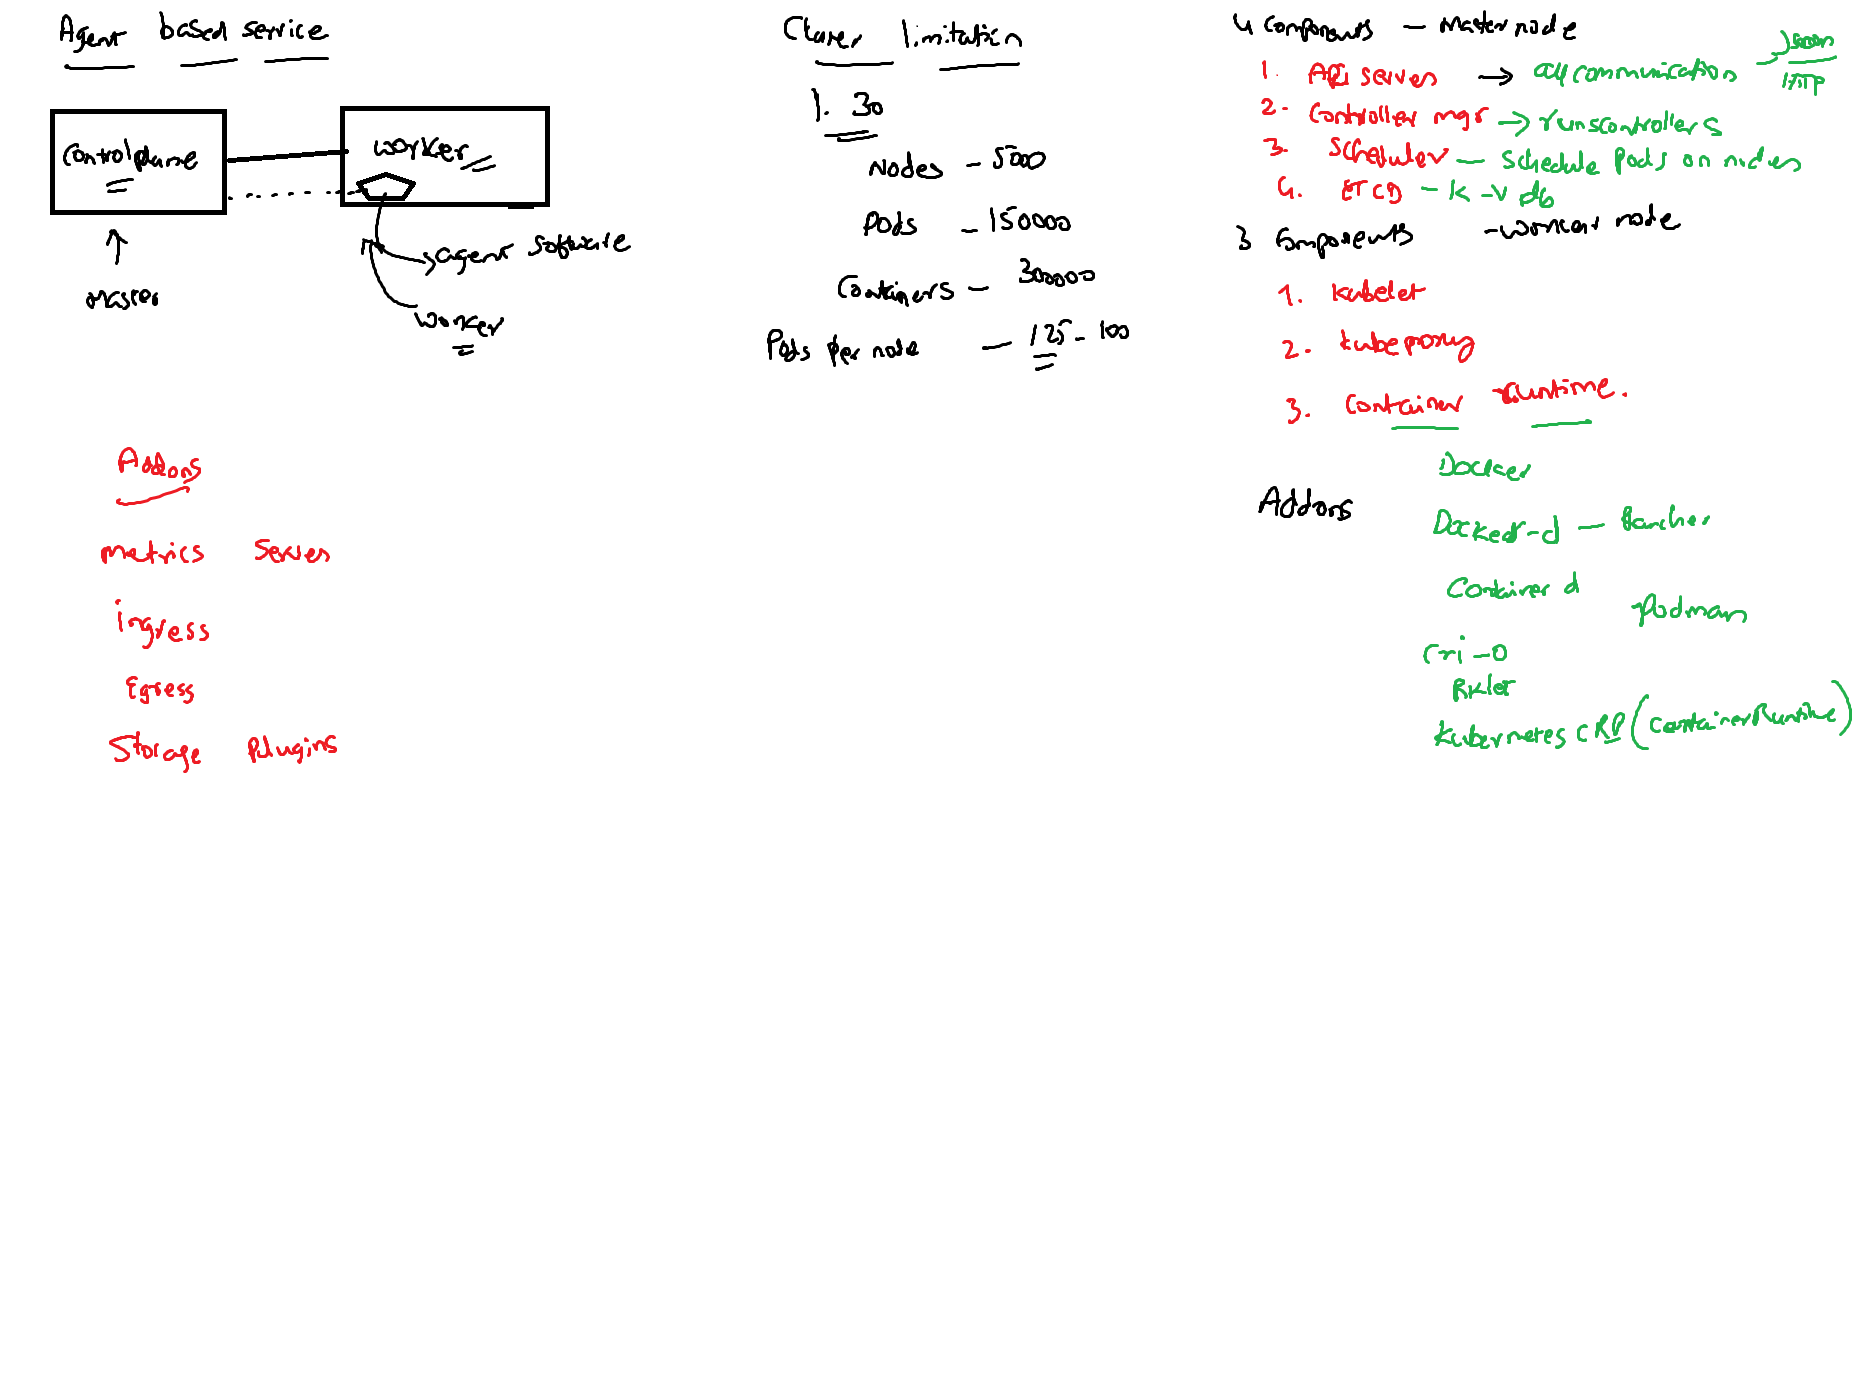 Agent based service
Controlplane
worker
Master
agent software
worker
Addons
metrics Server
ingress
Egress
Storage Plugins
Cluster limitation
1. 30
Nodes - 5000
Pods - 150000
Containers - 300000
Pods per node - 125 - 100
4 Components - Master node
1. Api server → all communication → json
HTTP
2. Controller mgr → runscontrollers
3. Scheduler - Schedule Pods on nodes
4. ETCD - K-V db
3 Components - worker node
1. Kubelet
2. kubeproxy
3. Container runtime.
Docker
Addons
Docker-d - Rancher
Container d
Podman
Cri-O
Rklet
Kubernetes CRP (containerRuntime)